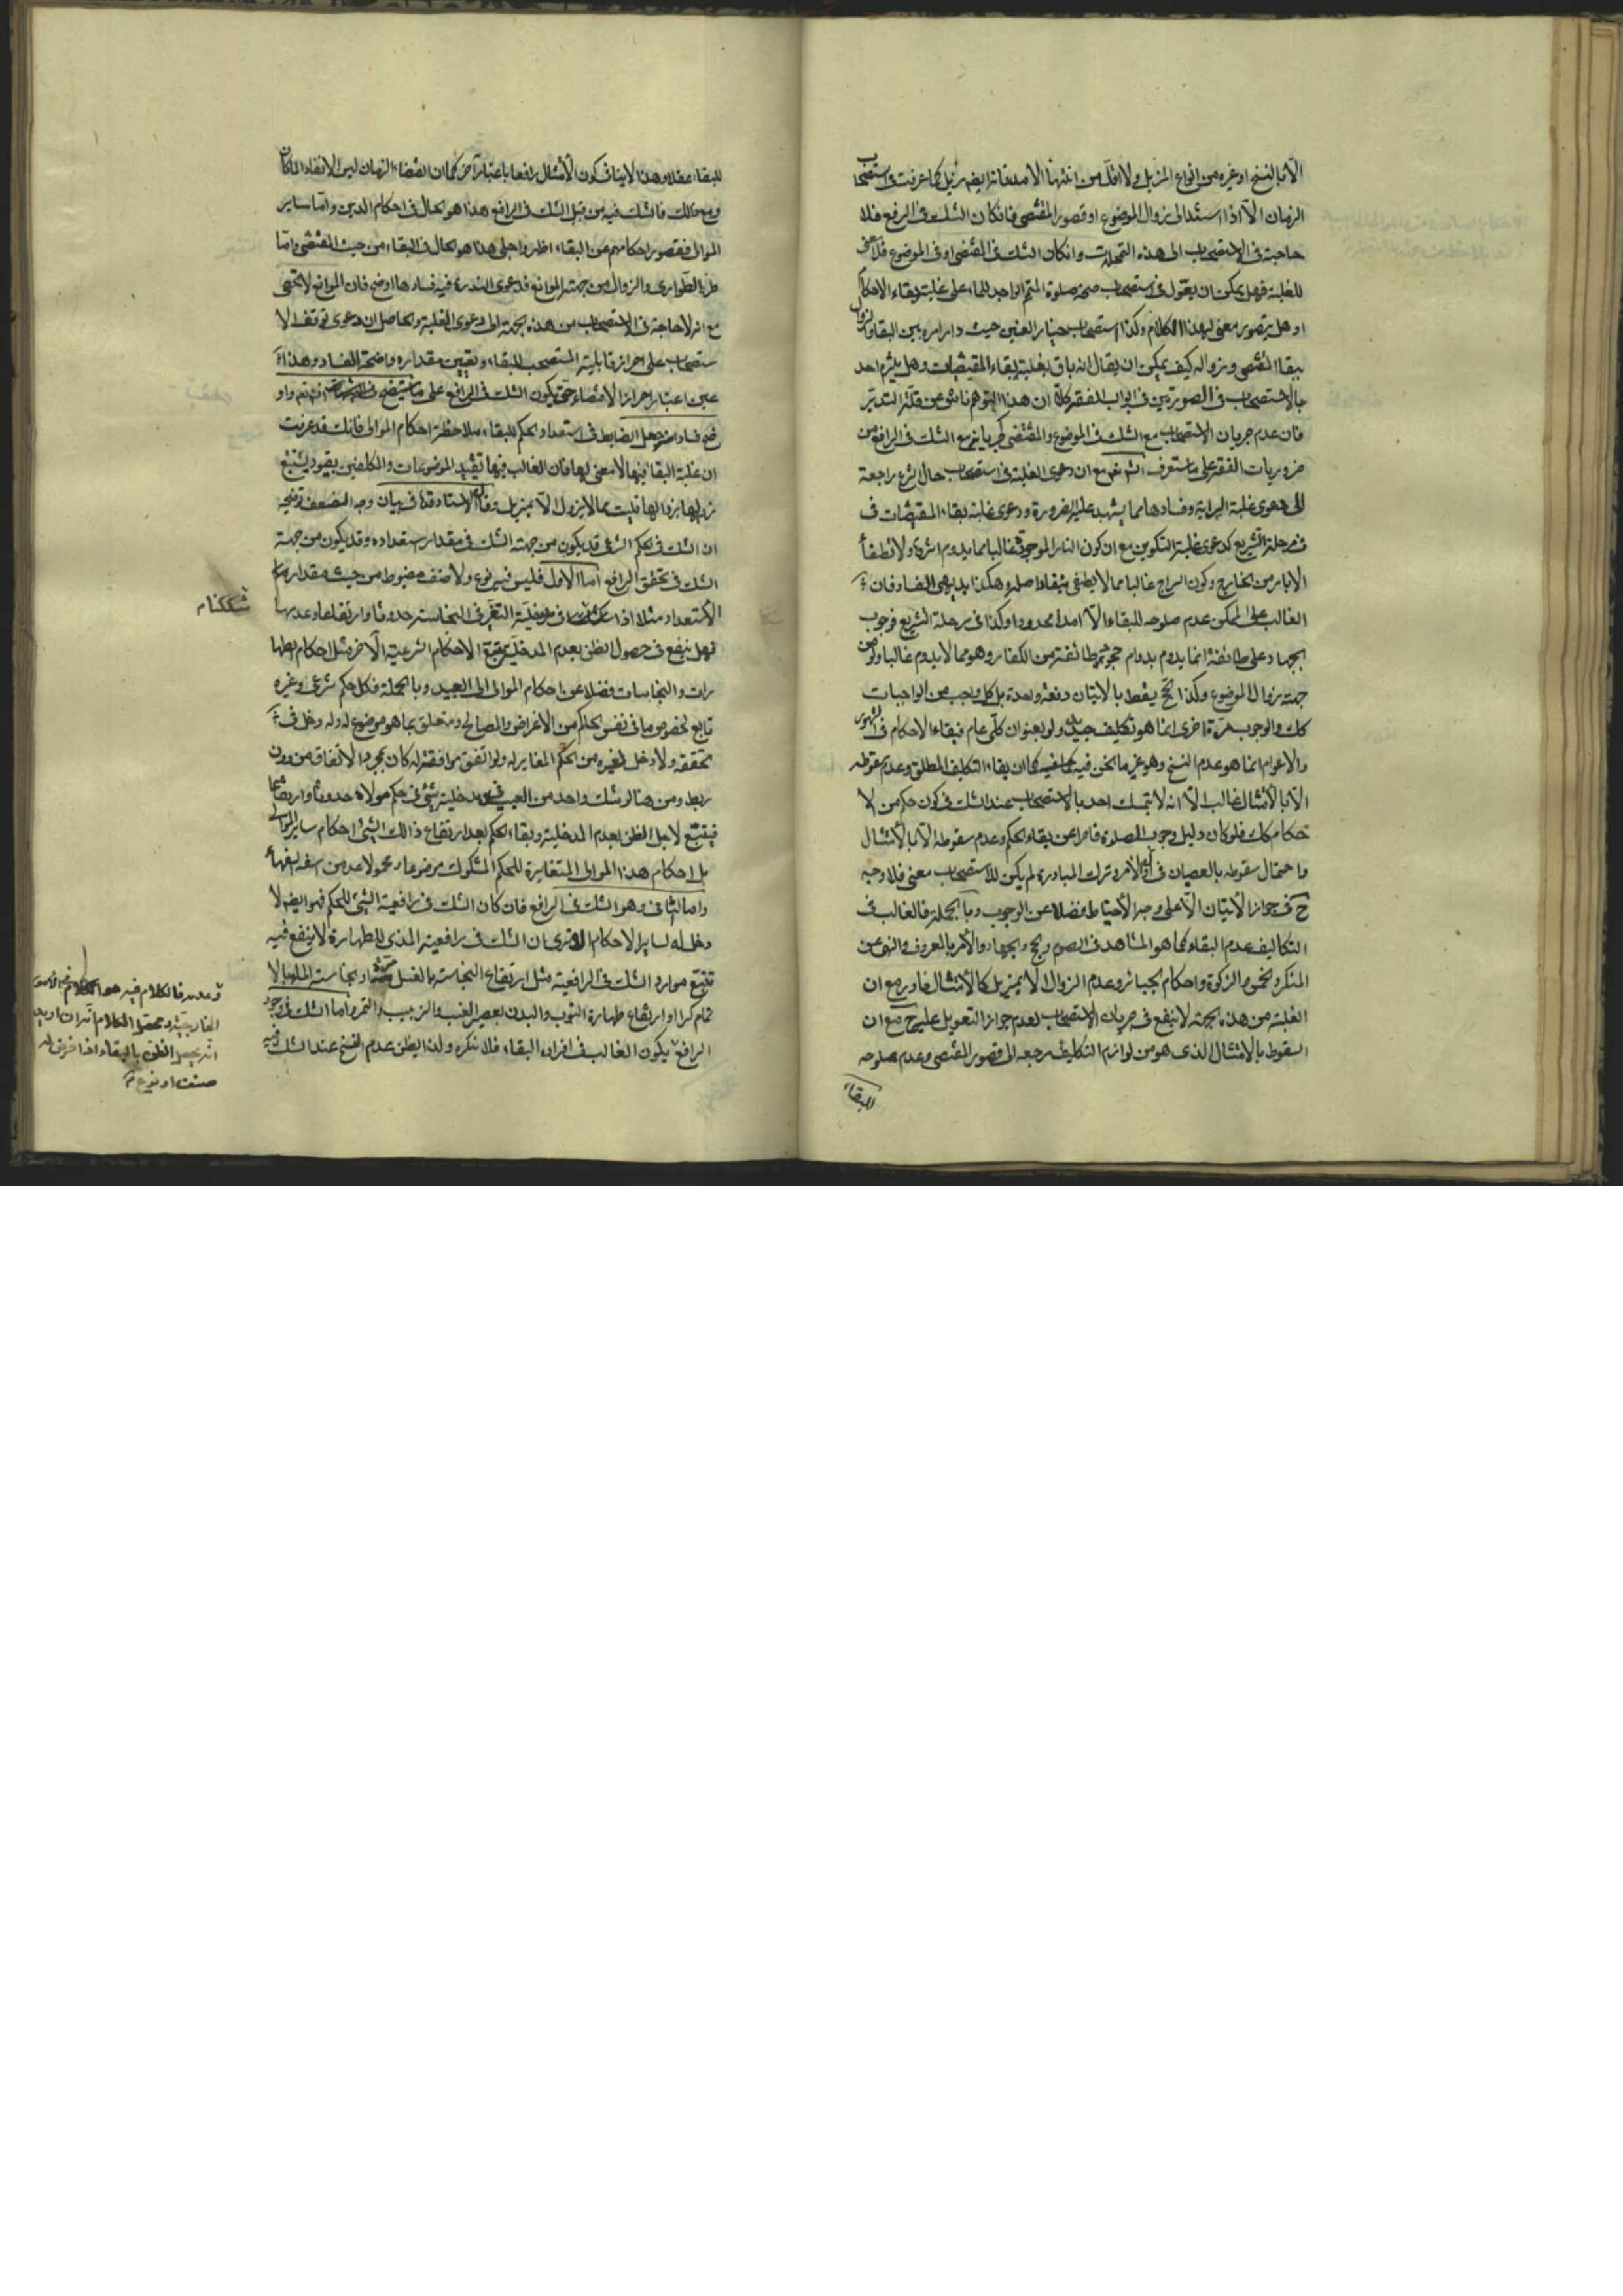 الا بالنسخ او غيره من انواع المزيل ولا اقل من انتهاء الامد فانه ايضا مزيل كما عرفت في استصحاب
الزمان الا اذا استند الى زوال الموضوع او قصور المقتضى فان كان الشك فى الرفع فلا
حاجة فى الاستصحاب الى هذه التمحلات وان كان الشك فى المقتضى او فى الموضوع فلا معنى
للغلبة فهل يمكن ان يقول فى استصحاب صحة صلوة المتيمم الواجد للماء على غلبة بقاء الاحكام
او هل يتصور معنى لهذا الكلام وكذا استصحاب خيار الغبن حيث دار امره بين البقاء والزوال
ببقاء المقتضى وزواله كيف يمكن ان يقال انه باق لغلبة بقاء المقتضيات وهل يلتزم احد
بالاستصحاب فى الصورتين فى ابواب الفقه كلا ان هذا التوهم ناش عن قلة التدبر
فان عدم جريان الاستصحاب مع الشك فى الموضوع والمقتضى كجريانه مع الشك فى الرافع من
ضروريات الفقه على ما ستعرف انشاء الله مع ان دعوى الغلبة فى استصحاب حال الشرع راجعة
الى دعوى غلبة البراية وفسادها مما يشهد عليه الضرورة ودعوى غلبة بقاء المقتضيات فى
مرحلة التشريع كدعوى غلبة التكوين مع ان كون النار الموجودة غالبا مما يدوم اثره ولا تطفأ
الا بامر من الخارج وكون السراج غالبا مما لا يطفى بنفاد اصله وهكذا بديهى الفساد فان
الغالب على الممكن عدم صلوحه للبقاء الا امدا محدودا وكذا فى مرحلة التشريع فوجوب
الجهاد على طائفة انما يدوم بدوام طائفة من الكفار وهو مما لا يدوم غالبا ولو من
جهة زوال الموضوع وكذا الحج يسقط بالاتيان دفعة واحدة بل كل واجب من الواجبات
كك والوجوب مرة اخرى انما هو تكليف جديد ولو بعنوان كلى عام فبقاء الاحكام فى الشهور
والاعوام انما هو عدم النسخ وهو غير ما نحن فيه كما ان بقاء التكليف المطلق وعدم سقوطه
الا بالامتثال غالب الا انه لا يتمسك احد بالاستصحاب عند الشك فى كون حكم من الا
حكام كك فلو كان دليل وجوب الصلوة قاصرا عن بقاء الحكم وعدم سقوطه الا بالامتثال
واحتمال سقوطه بالعصيان فى اول الامر وترك المبادرة لم يكن للاستصحاب معنى فلا وجه
ح فى جواز الاتيان الا على وجه الاحتياط فضلا عن الوجوب وبالجملة فالغالب فى
التكاليف عدم البقاء كما هو المشاهد فى الصوم والحج والجهاد والامر بالمعروف والنهى عن
المنكر والخمس والزكوة واحكام الجبائر وعدم الزوال الا بمزيل كالامتثال نادر مع ان
الغلبة من هذه الجهة لا ينفع فى جريان الاستصحاب لعدم جواز التعويل عليه ح مع ان
السقوط بالامتثال الذى هو من لوازم التكليف مرجعه الى قصور المقتضى وعدم صلوحه
للبقاء
للبقاء عقلا وهذا لا ينافى كون الامتثال رافعا باعتبار آخر كما ان انقضاء الزمان ليس الا نفاد الامكان
ومع ذلك فالشك فيه من قبل الشك فى الرافع هذا هو الحال فى احكام الدين واما ساير
الموالى فقصور احكامهم عن البقاء اظهر واجلى هذا هو الحال فى البقاء من حيث المقتضى واما
طريا لطوارى والزوال من جهة الموانع فدعوى الندرة فيه فسادها اوضح فان الموانع لا تحصى
مع انه لا حاجة فى الاستصحاب من هذه الجهة الى دعوى الغلبة والحاصل ان دعوى توقف الا
ستصحاب على احراز قابلية المستصحب للبقاء وتعيين مقداره واضحة الفساد وهذا
عين اعتبار احراز الاقتضاء حتى يكون الشك فى الرافع على ما ستتضح انشاء الله تعم واو
ضح فسادا منه جعل الضابط فى استعداد الحكم للبقاء ملاحظة احكام الموالى فانك قد عرفت
ان غلبة البقاء فيها لا معنى لها فان الغالب فيها تقييد الموضوعات والمكلفين بقيود يتبع
زوالها بزوالها فليست مما لا يزول الا بمزيل وقال الاستاد قده فى بيان وجه الضعف توضيحه
ان الشك فى الحكم الشرعى قد يكون من جهة الشك فى مقدار استعداده وقد يكون من جهة
الشك فى تحقق الرافع اما الاول فليس فيه نوع ولا صنف مضبوط من حيث مقدار
الاستعداد مثلا اذا شككنا فى مدخلية التغير فى النجاسة حدوثا وارتفاعا وعدمها
فهل ينفع فى حصول الظن بعدم المدخلية تتبع الاحكام الشرعية الاخر مثل احكام الطها
رات والنجاسات فضلا عن احكام الموالى الى العبيد وبالجملة فكل حكم شرعى وغيره
تابع لخصوص ما فى نفس الحكم من الاغراض والمصالح ومتعلق بما هو موضوع له وله دخل فى
تحققه ولا دخل لغيره من الحكم المغاير له ولو اتفق موافقته له كان بمجرد الاتفاق من دون
ربط ومن هنا لو شك واحد من العبيد فى مدخلية شىء فى حكم مولاه حدوثا وارتفاعا
فيتتبع لاجل الظن بعدم المدخلية وبقاء الحكم بعد ارتفاع ذلك الشىء احكام ساير الموالى
بل احكام هذا المولى المتغايرة للحكم المشكوك موضوعا ومحمولا عد من اسفه السفهاء
واما الثانى وهو الشك فى الرافع فان كان الشك فى رافعية الشىء للحكم فهو ايضا لا
دخل له لساير الاحكام الا ترى ان الشك فى رافعية المذى للطهارة لا ينفع فيه
تتبع موارد الشك فى الرافعية مثل ارتفاع النجاسة بالغسل مرة او نجاسة الماء بالا
تمام كرا او ارتفاع طهارة الثوب والبدن بعصير العنب والزبيب والتمر واما الشك فى وجود
الرافع يكون الغالب فى افراده البقاء فلا ننكره ولذا يظن عدم النسخ عند الشك فيه
شككنا م
وعدمه فالكلام فيه هو الكلام فى الامور
الخارجية ومحصل الكلام انه ان اريد
انه يحصل الظن بالبقاء اذا فرض له
صنف او نوع